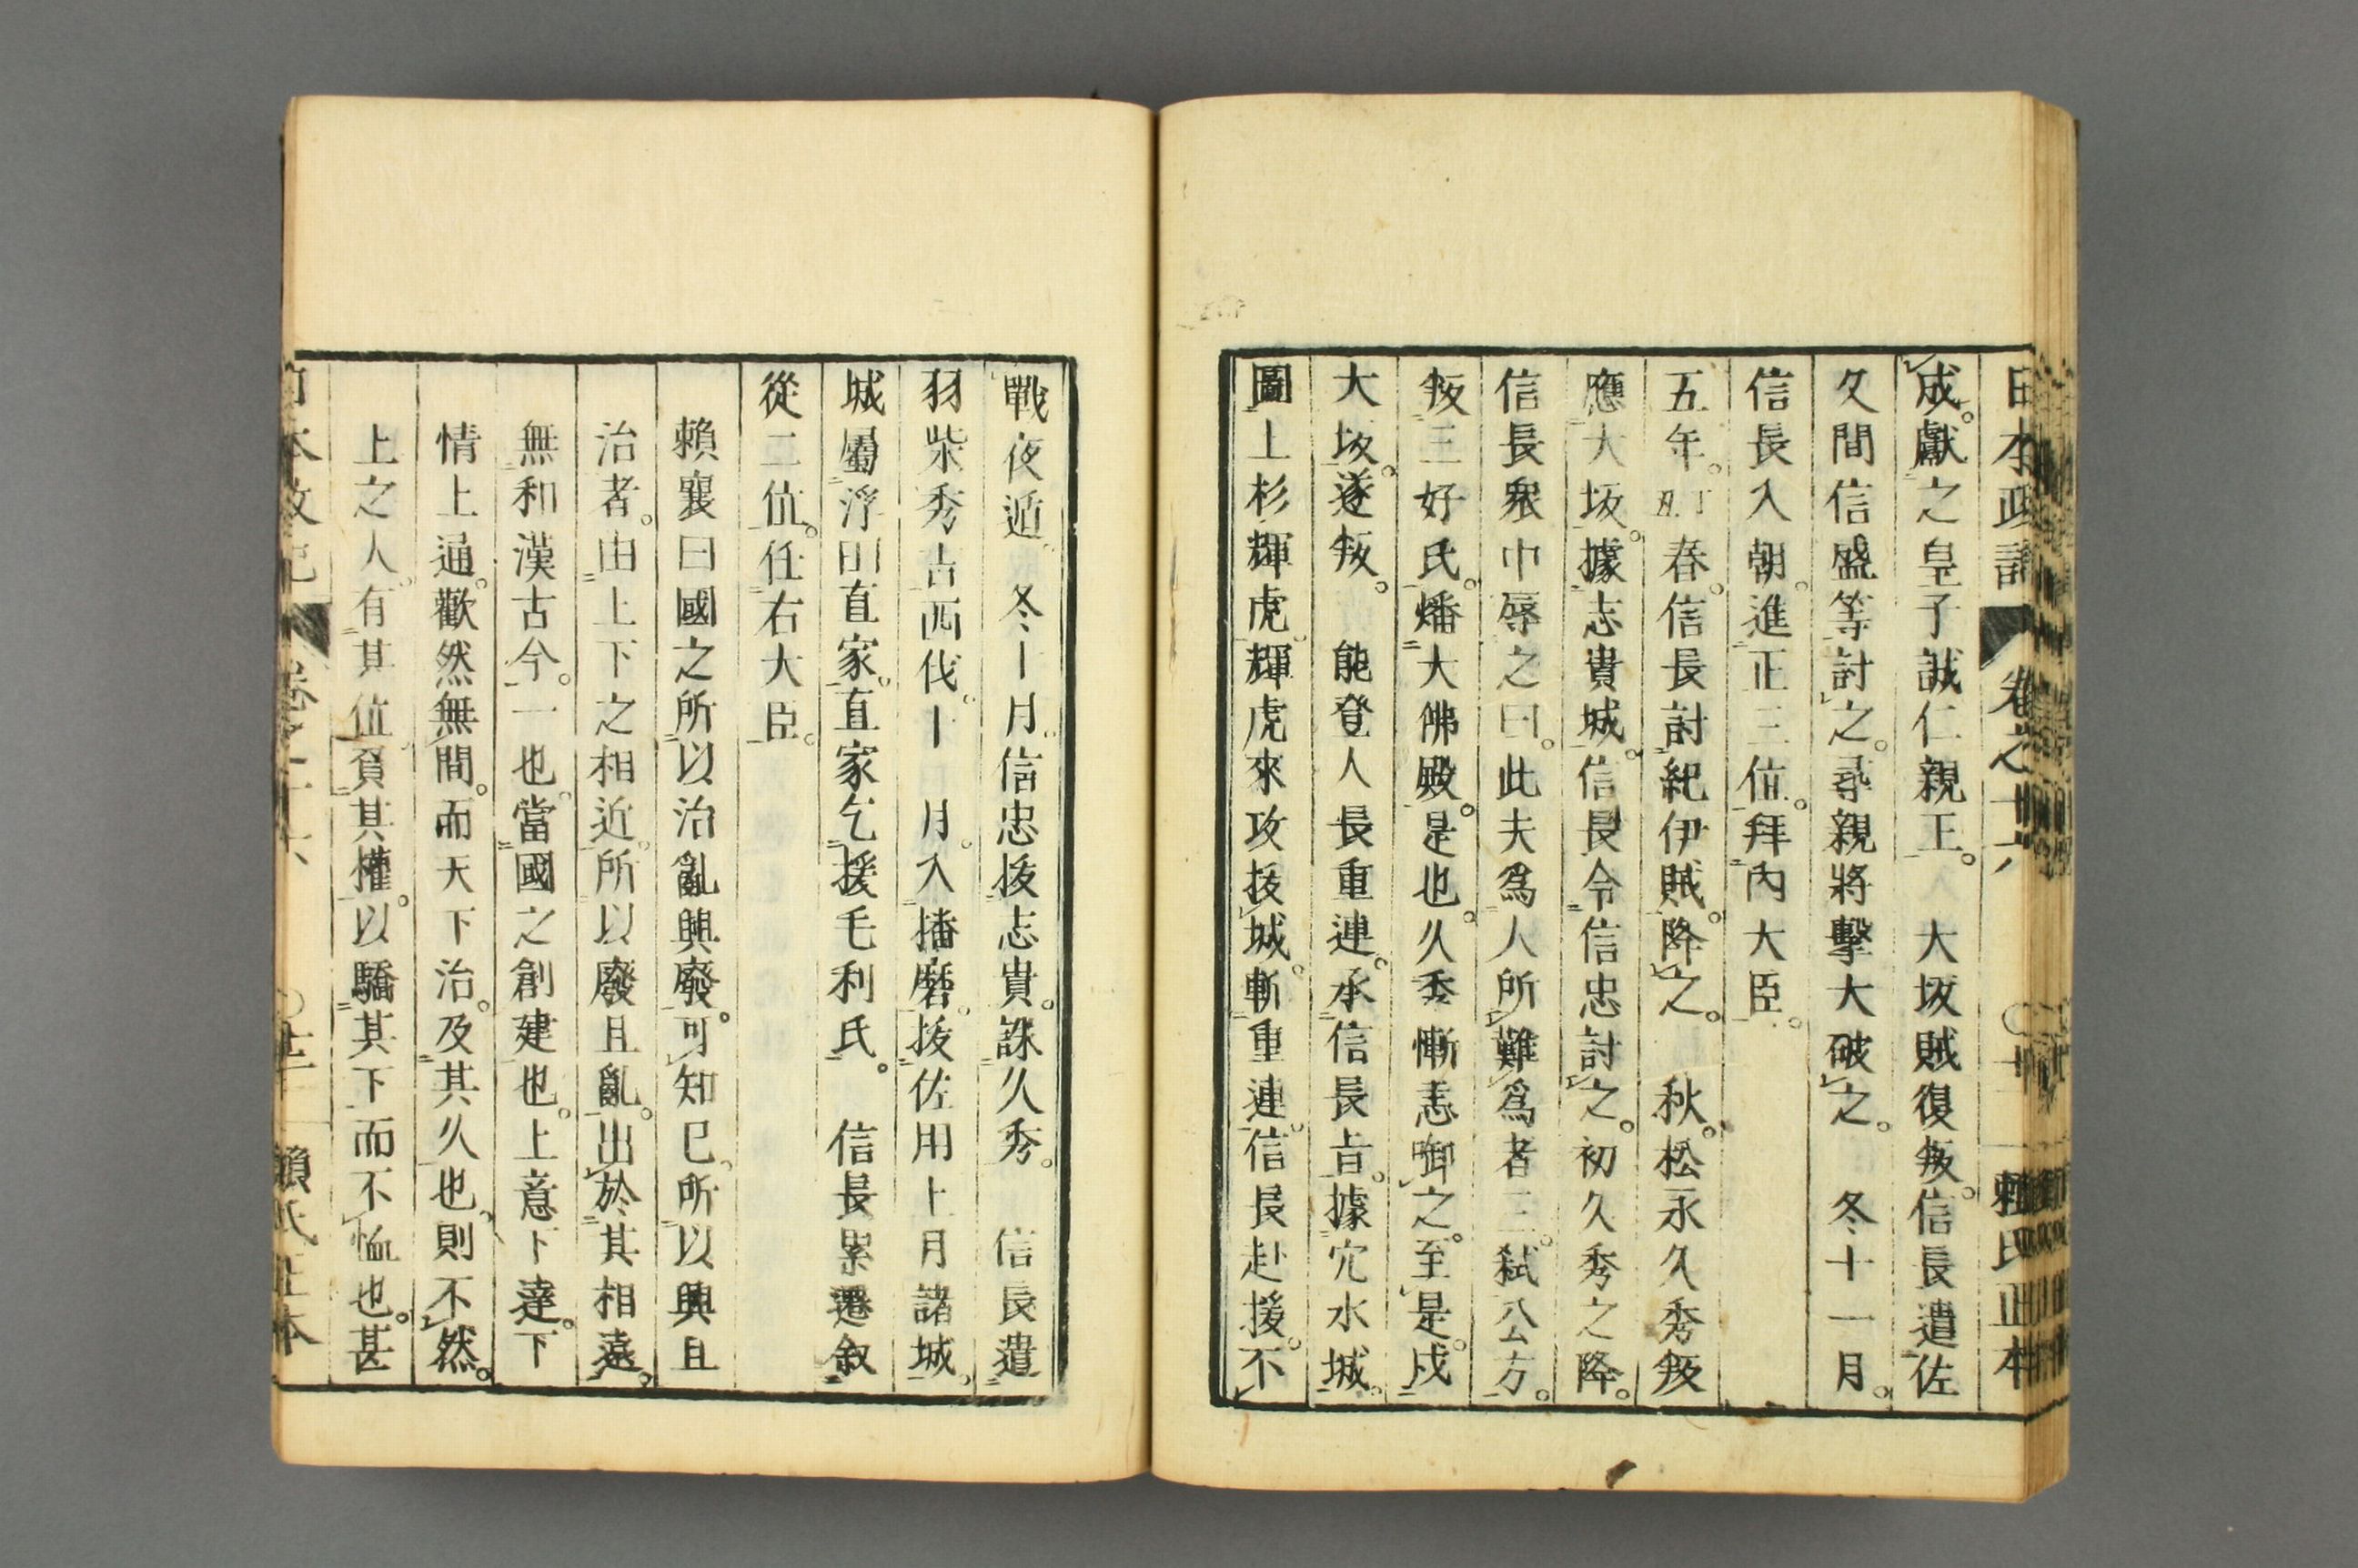 日本政記 卷之十六 〇十二 賴氏正本
成。獻之皇子誠仁親王。 大坂賊復叛。信長遣佐
久間信盛等討之。尋親將擊大破之。 冬十一月。
信長入朝。進正三位。拜內大臣。
五年。春。信長討紀伊賊。降之。 秋。松永久秀叛
應大坂。據志貴城。信長令信忠討之。初久秀之降。
信長衆中辱之曰。此夫爲人所難爲者三。弑公方。
叛三好氏。燔大佛殿。是也。久秀慚恚啣之。至是。戍
大坂。遂叛。 能登人長重連。承信長旨。據穴水城。
圖上杉輝虎。輝虎來攻拔城。斬重連。信長赴援。不
戰夜遁。 冬十月。信忠拔志貴。誅久秀。 信長遣
羽柴秀吉西伐。十 月。入播磨。拔佐用上月諸城。
城屬浮田直家。直家乞援毛利氏。 信長累遷敘
從二位。任右大臣。
賴襄曰國之所以治亂興廢。可知已。所以興且
治者。由上下之相近。所以廢且亂。出於其相遠。
無和漢古今。一也。當國之創建也。上意下達。下
情上通。歡然無間。而天下治。及其久也。則不然。
上之人。有其位。負其權。以驕其下而不恤也。甚
本政記 卷之十六 賴氏正本